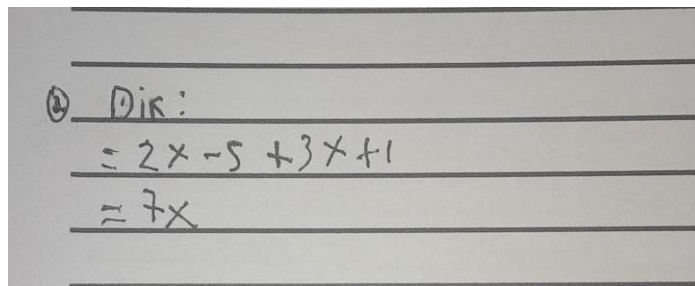 ② Dik:
= 2x - 5 + 3x + 1
= 7x